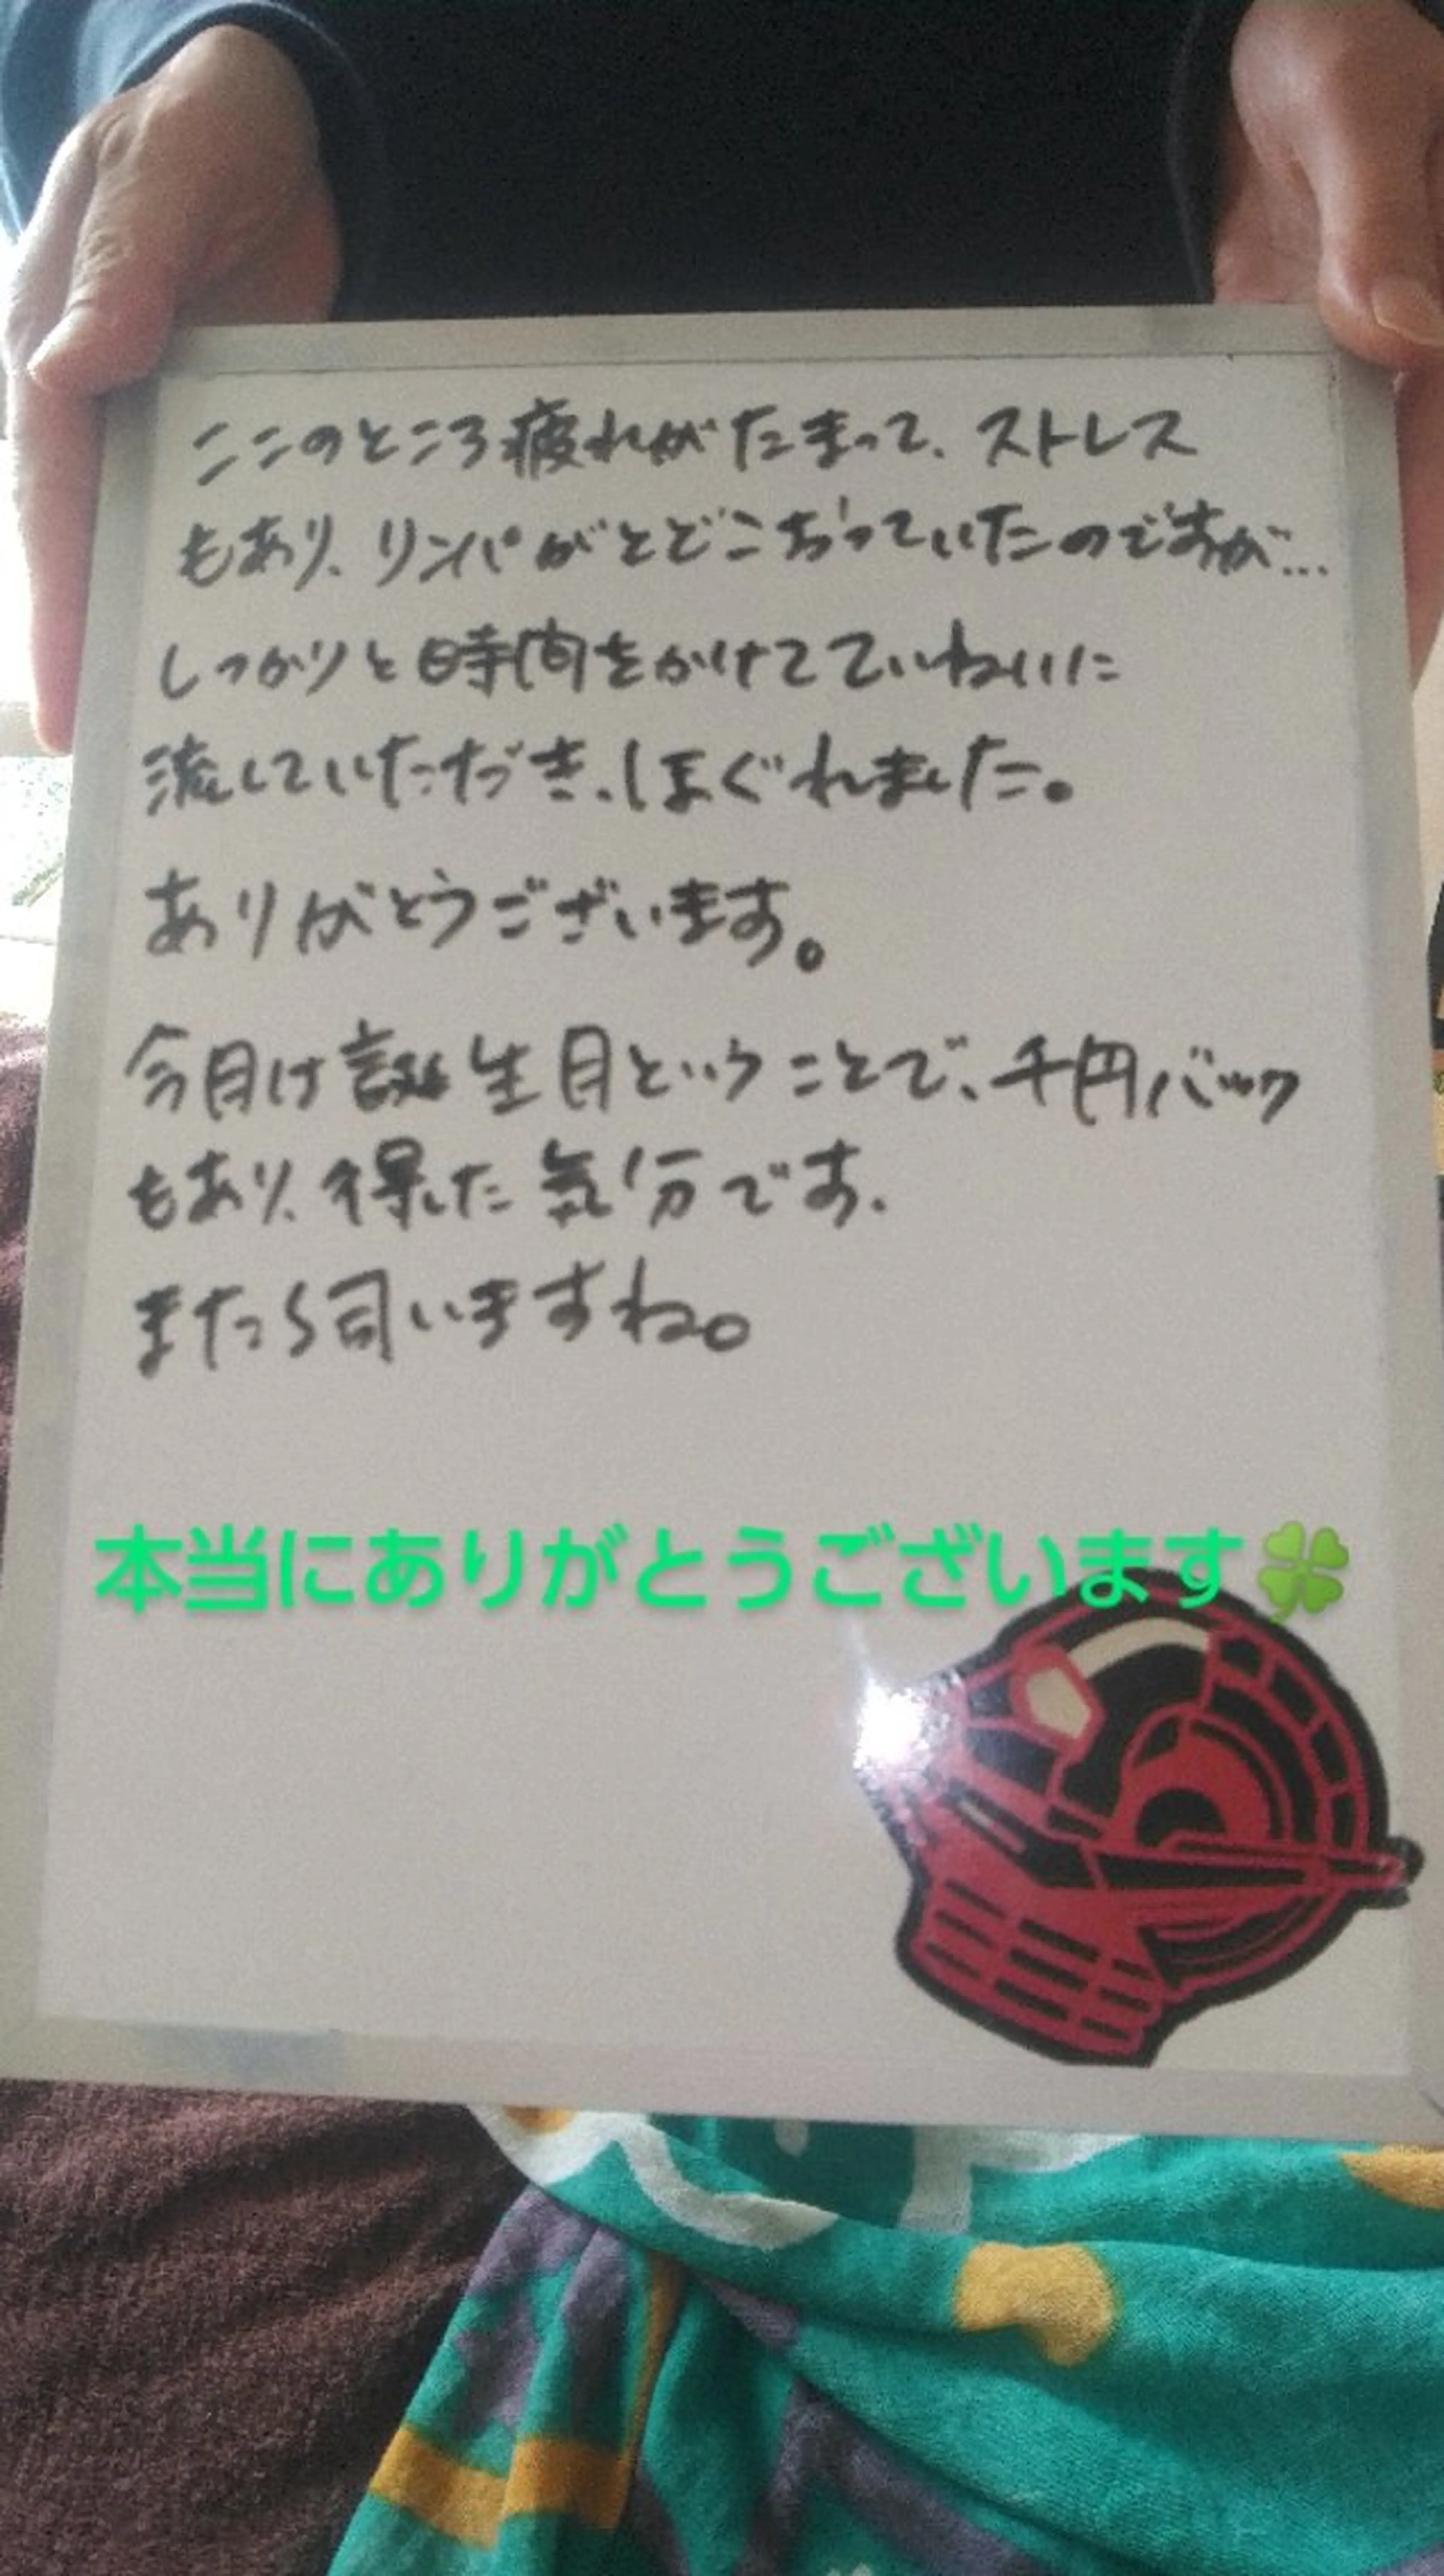 ここのところ疲れがたまって、ストレス
もあり、リンパがとどこおっていたのですが…
しっかりと時間をかけてていねいに
流していただき、ほぐれました。
ありがとうございます。
今月は誕生月ということで、千円バック
もあり、得した気分です、
またら伺いますね。
本当にありがとうございます🍀